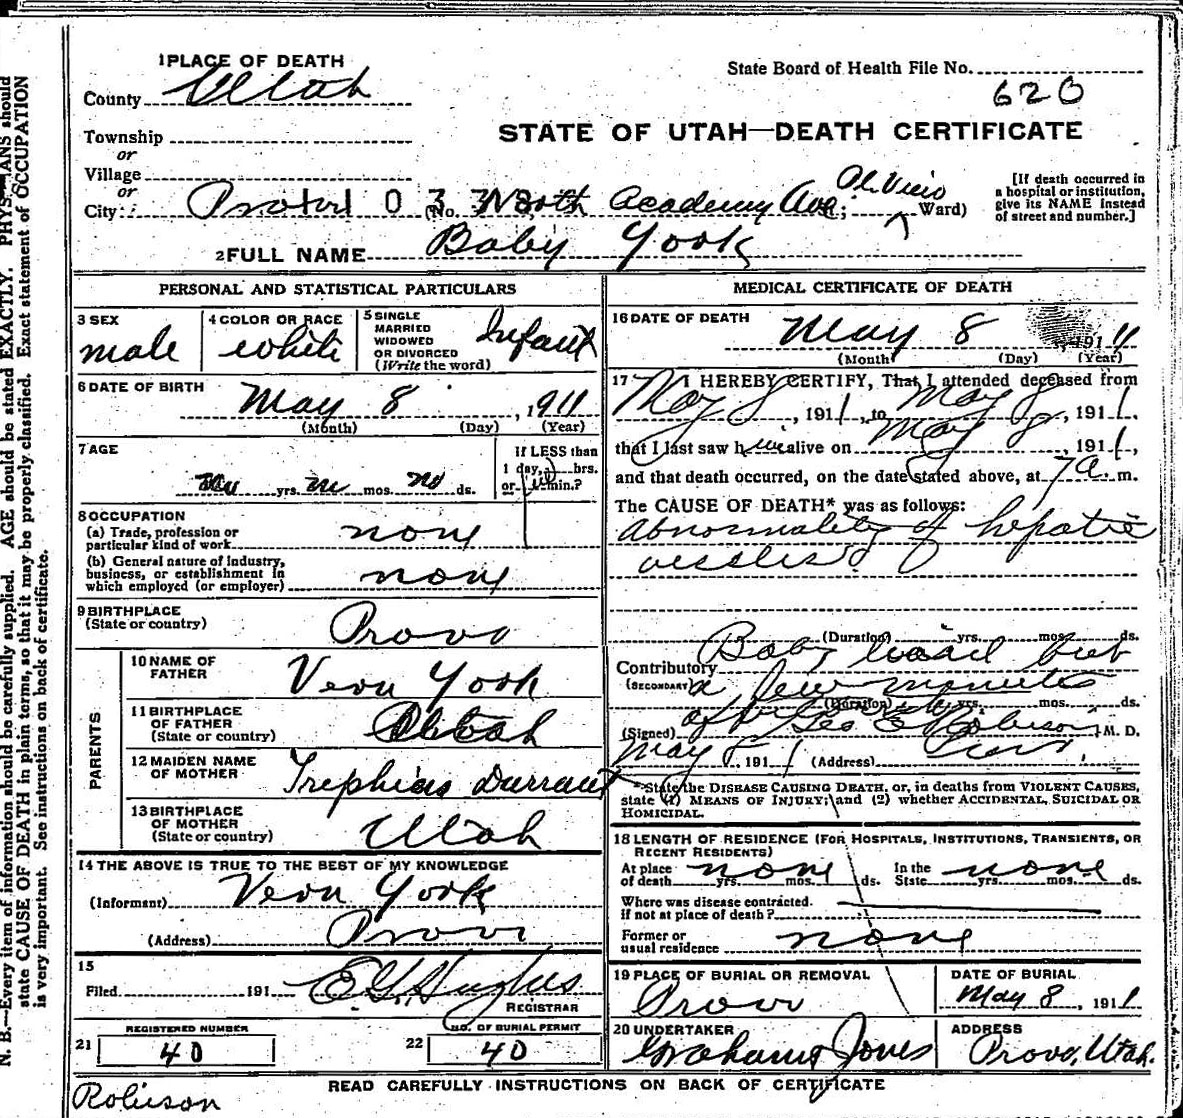 1 PLACE OF DEATH
County Utah
State Board of Health File No.
620
STATE OF UTAH—DEATH CERTIFICATE
Township
or
Village
or
City: Provo (No. North Academy Ave; Ward)
[If death occurred in a hospital or institution, give its NAME instead of street and number.]
2 FULL NAME Baby York
PERSONAL AND STATISTICAL PARTICULARS
3 SEX male
4 COLOR OR RACE white
5 SINGLE MARRIED WIDOWED OR DIVORCED (Write the word) Infant
6 DATE OF BIRTH May 8, 1911
(Month) (Day) (Year)
7 AGE no yrs. no mos. no ds.
If LESS than 1 day, hrs. or min.?
8 OCCUPATION
(a) Trade, profession or particular kind of work none
(b) General nature of industry, business, or establishment in which employed (or employer) none
9 BIRTHPLACE (State or country) Provo
PARENTS
10 NAME OF FATHER Vern York
11 BIRTHPLACE OF FATHER (State or country) Utah
12 MAIDEN NAME OF MOTHER Durrant
13 BIRTHPLACE OF MOTHER (State or country) Utah
14 THE ABOVE IS TRUE TO THE BEST OF MY KNOWLEDGE
(Informant) Vern York
(Address) Provo
15
Filed 191 E G Hughes
REGISTRAR
REGISTERED NUMBER
21 40
NO. OF BURIAL PERMIT
22 40
MEDICAL CERTIFICATE OF DEATH
16 DATE OF DEATH May 8 1911
(Month) (Day) (Year)
17 I HEREBY CERTIFY, That I attended deceased from
May 8, 1911, to May 8, 1911,
that I last saw him alive on May 8, 1911,
and that death occurred, on the date stated above, at 7 a. m.
The CAUSE OF DEATH* was as follows:
Abnormality of hepatic
vessles
(Duration) yrs. mos. ds.
Contributory Baby lived but
(SECONDARY) a few minutes
(Duration) yrs. mos. ds.
after
(Signed) Geo E Robison M. D.
May 8, 1911 (Address) Provo
*State the DISEASE CAUSING DEATH, or, in deaths from VIOLENT CAUSES, state (1) MEANS OF INJURY; and (2) whether ACCIDENTAL, SUICIDAL OR HOMICIDAL.
18 LENGTH OF RESIDENCE (FOR HOSPITALS, INSTITUTIONS, TRANSIENTS, OR RECENT RESIDENTS)
At place of death none yrs. mos. ds. In the State none yrs. mos. ds.
Where was disease contracted. if not at place of death?
Former or usual residence none
19 PLACE OF BURIAL OR REMOVAL Provo
DATE OF BURIAL May 8, 1911
20 UNDERTAKER Graham Jones
ADDRESS Provo, Utah.
READ CAREFULLY INSTRUCTIONS ON BACK OF CERTIFICATE
Robison
N. B.—Every item of information should be carefully supplied. AGE should be stated EXACTLY. should
state CAUSE OF DEATH in plain terms, so that it may be properly classified. Exact statement of OCCUPATION
is very important. See instructions on back of certificate.